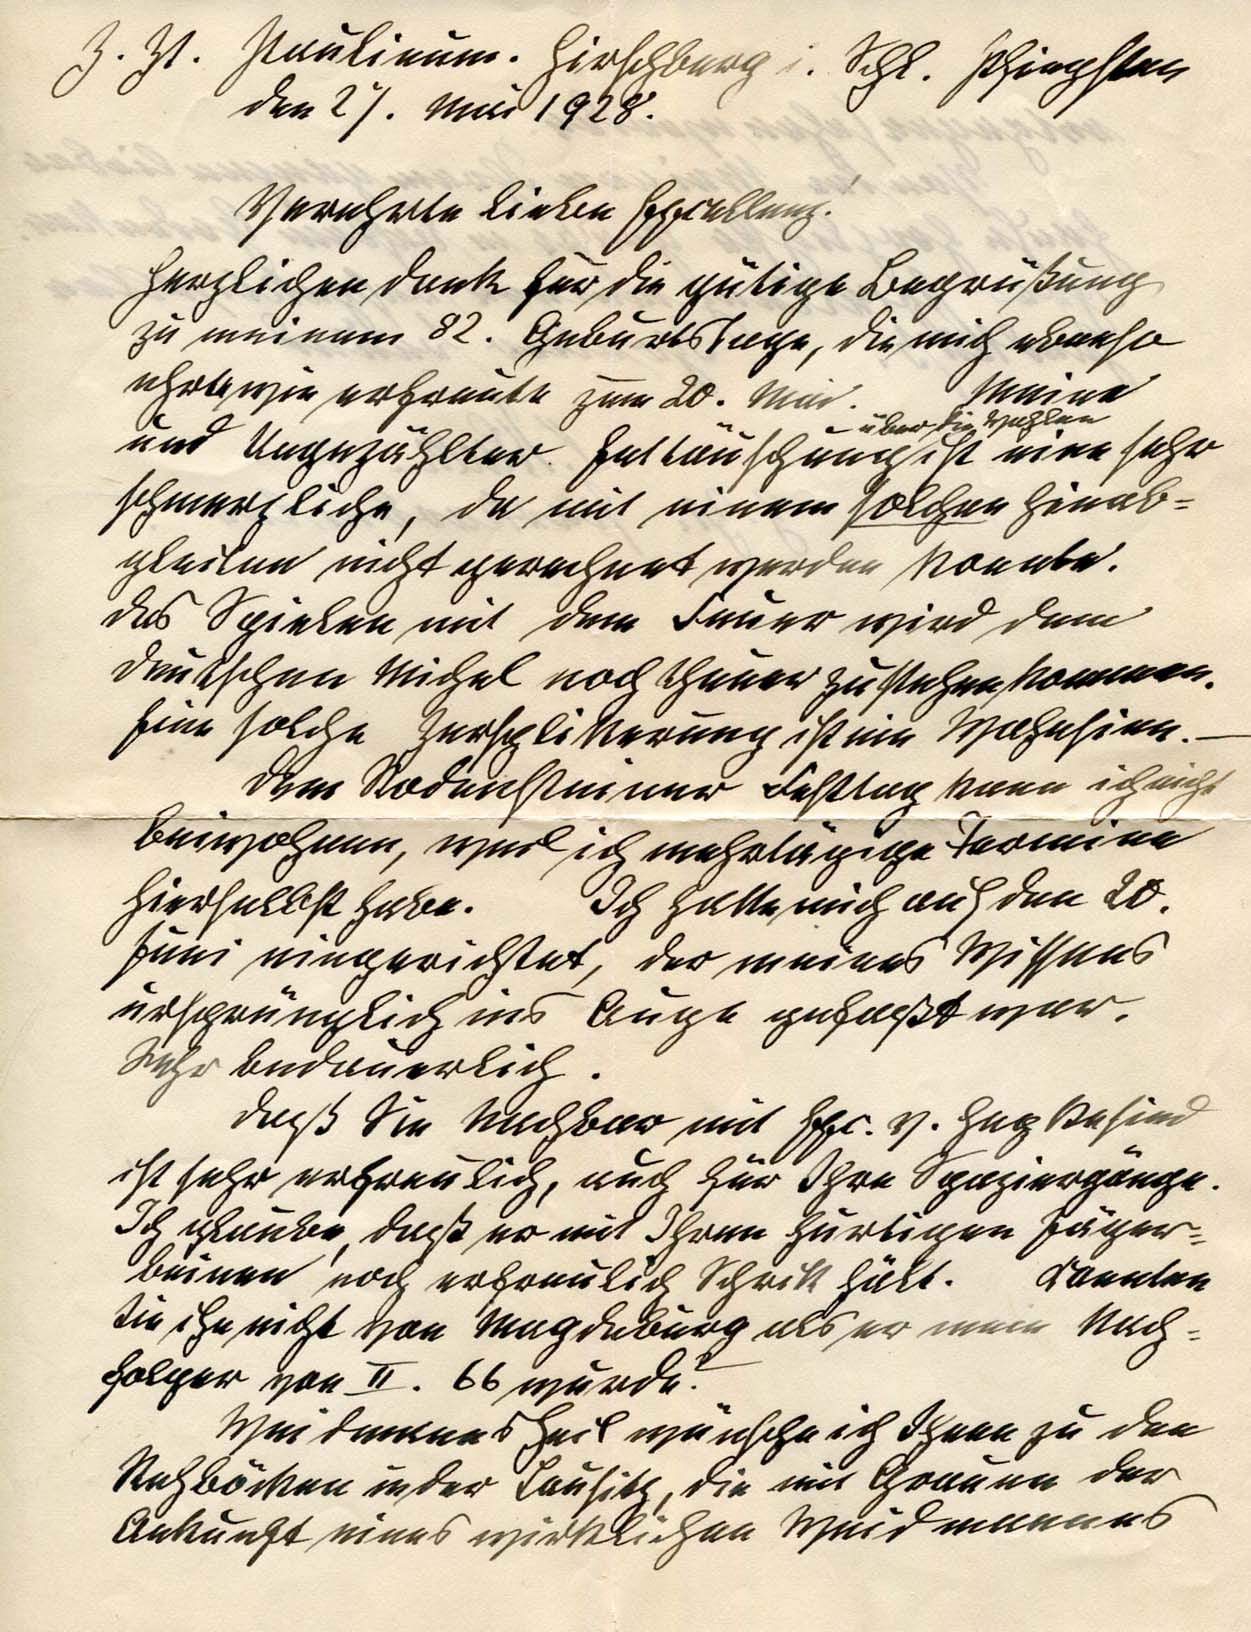 Z. Zt. Paulinum. Hirschberg i. Schl. Pfingsten
den 27. Mai 1928.
Verehrte liebe Excellenz!
Herzlichen Dank für die gütige Begrüßung
zu meinem 82. Geburtstage, die mich ebenso
ehrte wie erfreute zum 20. Mai. Meine
über die Wahlen
und Ungezählter Enttäuschung ist eine sehr
schmerzliche, da mit einem solchen Hinab-
gleiten nicht gerechnet werden konnte.
Das Spielen mit dem Feuer wird dem
deutschen Michel noch theuer zu stehen kommen.
Eine solche Zersplitterung ist ein Wahnsinn. —
Dem Rodensteiner Festtag kann ich nicht
beiwohnen, weil ich mehrtägige Termine
hierselbst habe. Ich hatte mich auf den 20.
Juni eingerichtet, der meines Wissens
ursprünglich ins Auge gefaßt war.
Sehr bedauerlich.
Daß Sie Nachbar mit Exc. v. sind
ist sehr erfreulich, auch für Ihre Spaziergänge.
Ich glaube, daß er mit Ihren hurtigen Jäger-
beinen noch erfreulich Schritt hält. Kannten
Sie ihn nicht von Magdeburg als er mein Nach-
folger von II. 66 wurde?
Weidmannsheil wünsche ich Ihnen zu den
Rehböcken in der Lausitz, die mit Grauen der
Ankunft eines wirklichen Weidmannes